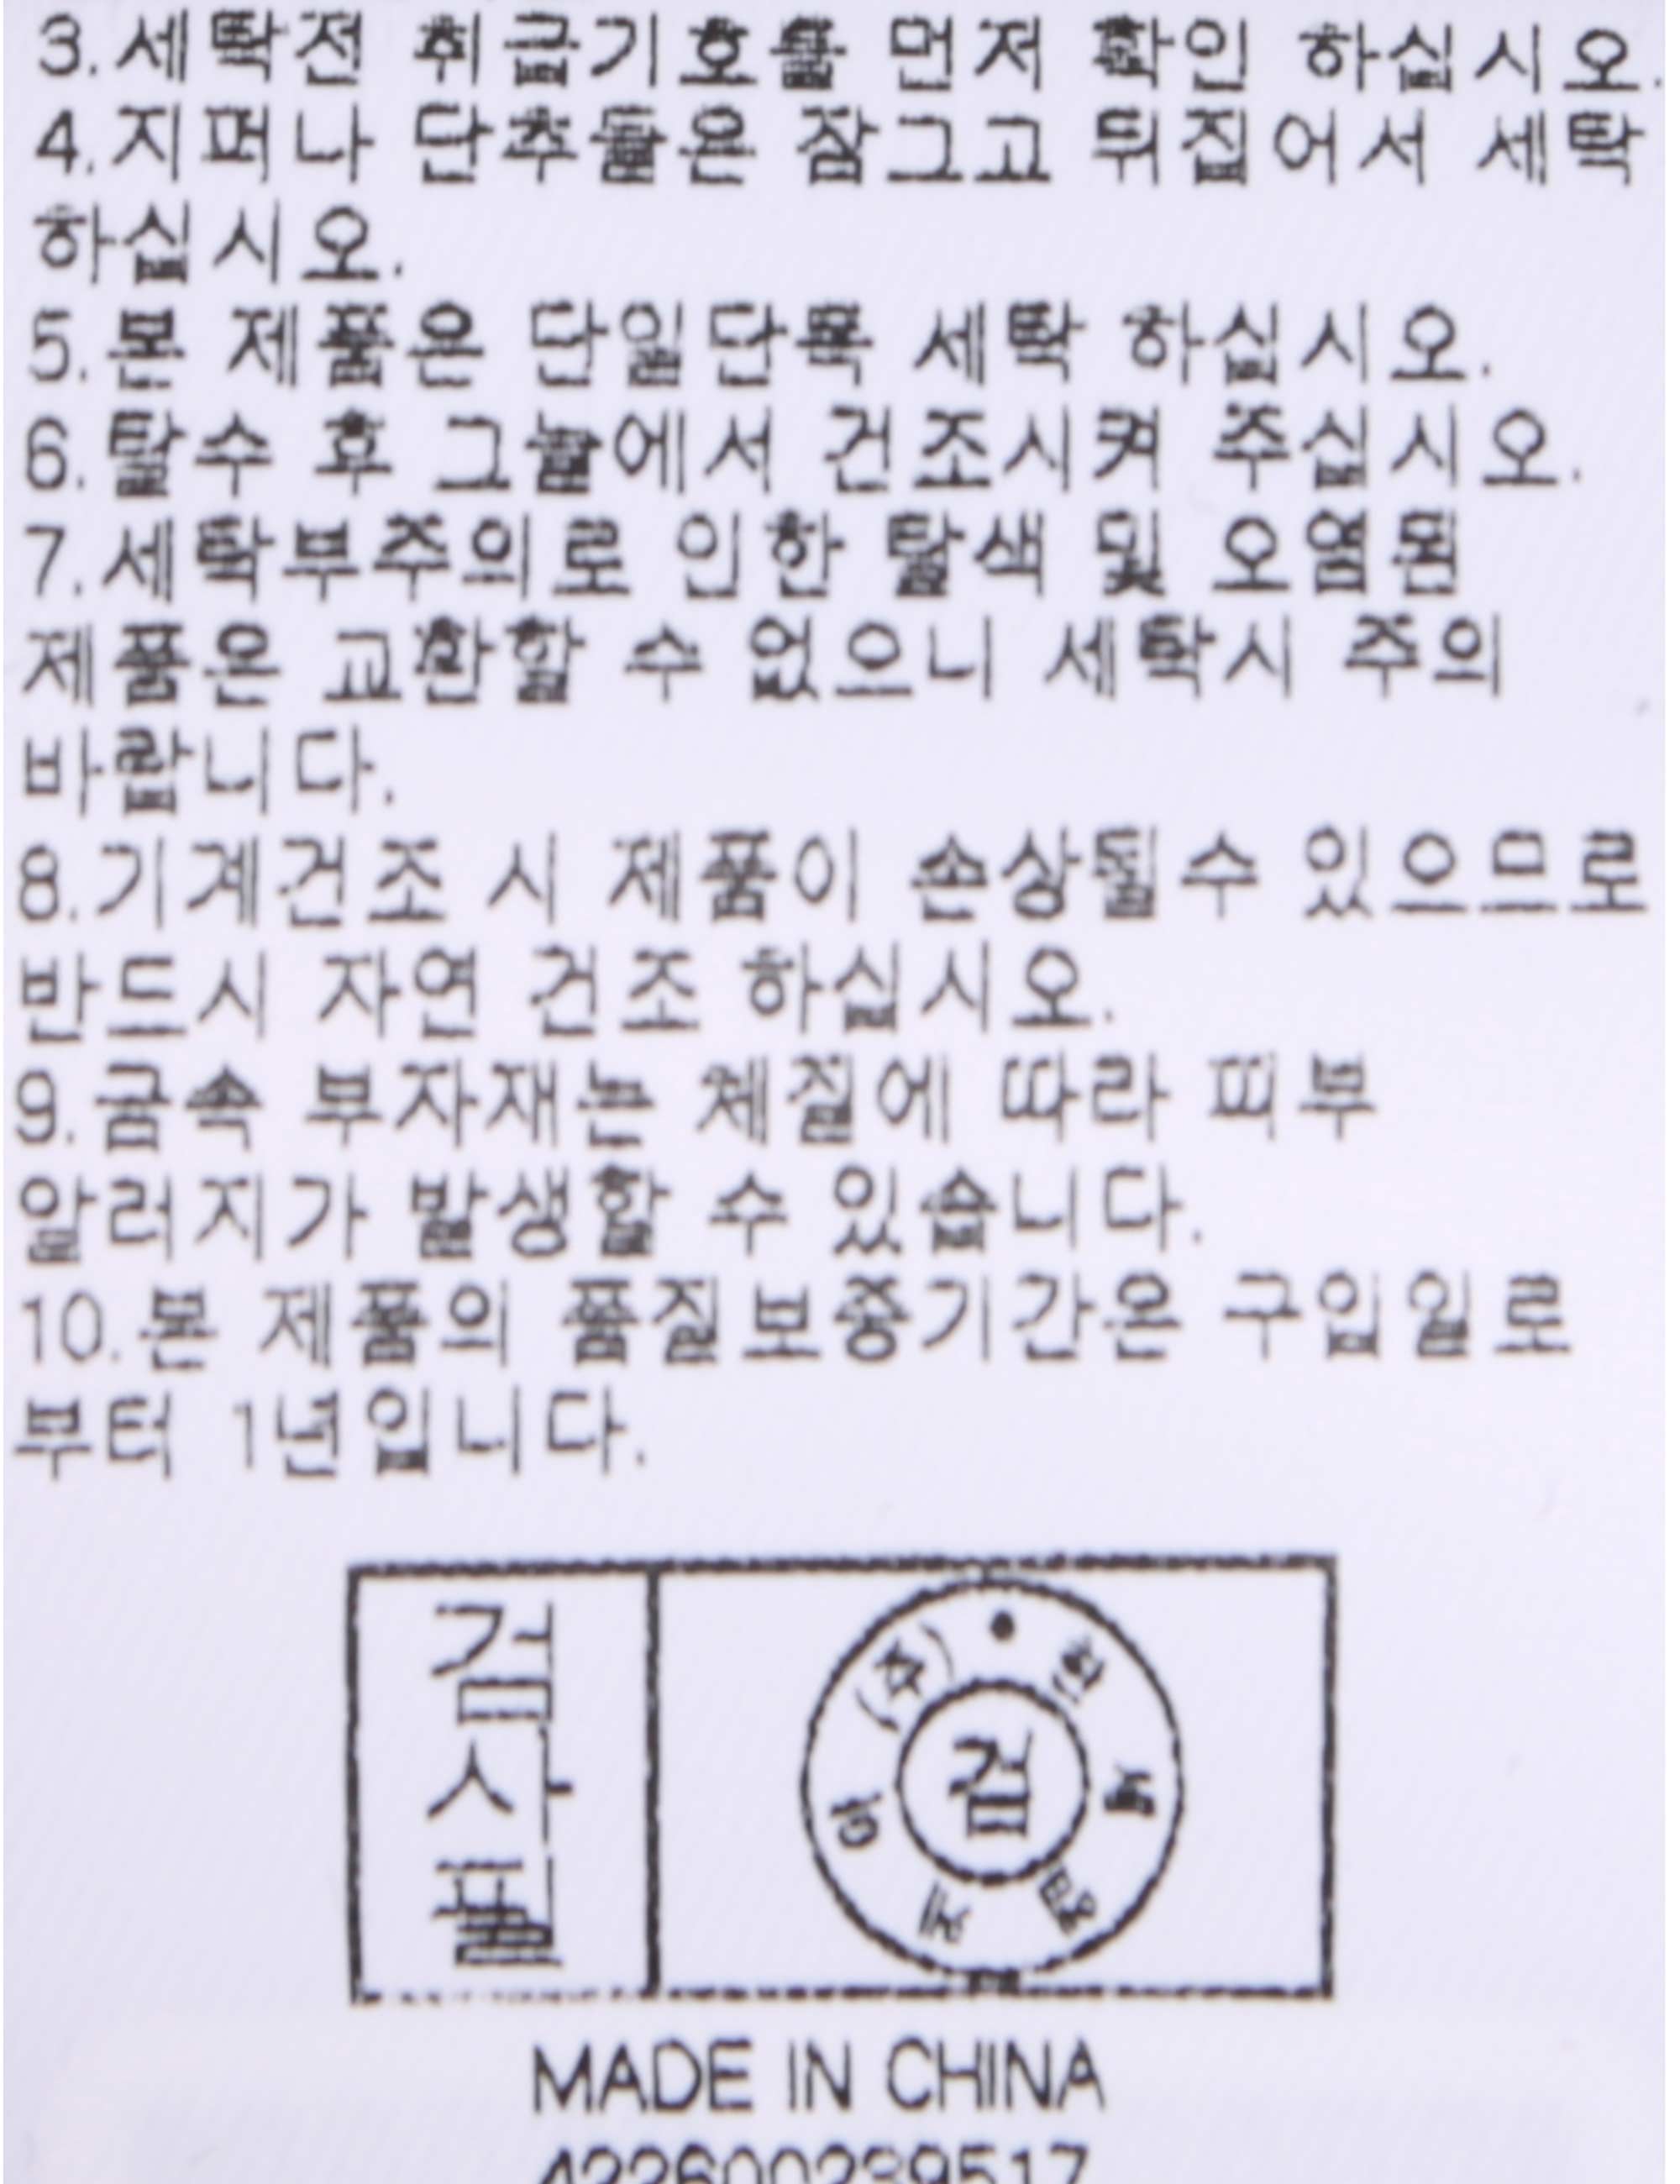 3.세탁전 취급기호를 먼저 확인 하십시오.
4.지퍼나 단추들은 잠그고 뒤집어서 세탁
하십시오.
5.본 제품은 단일단독 세탁 하십시오.
6.탈수 후 그늘에서 건조시켜 주십시오.
7.세탁부주의로 인한 탈색 및 오염된
제품은 교환할 수 없으니 세탁시 주의
바랍니다.
8.기계건조 시 제품이 손상될수 있으므로
반드시 자연 건조 하십시오.
9.금속 부자재는 체질에 따라 피부
알러지가 발생할 수 있습니다.
10.본 제품의 품질보증기간은 구입일로
부터 1년입니다.
검사필
(주)
검
MADE IN CHINA
422600239517